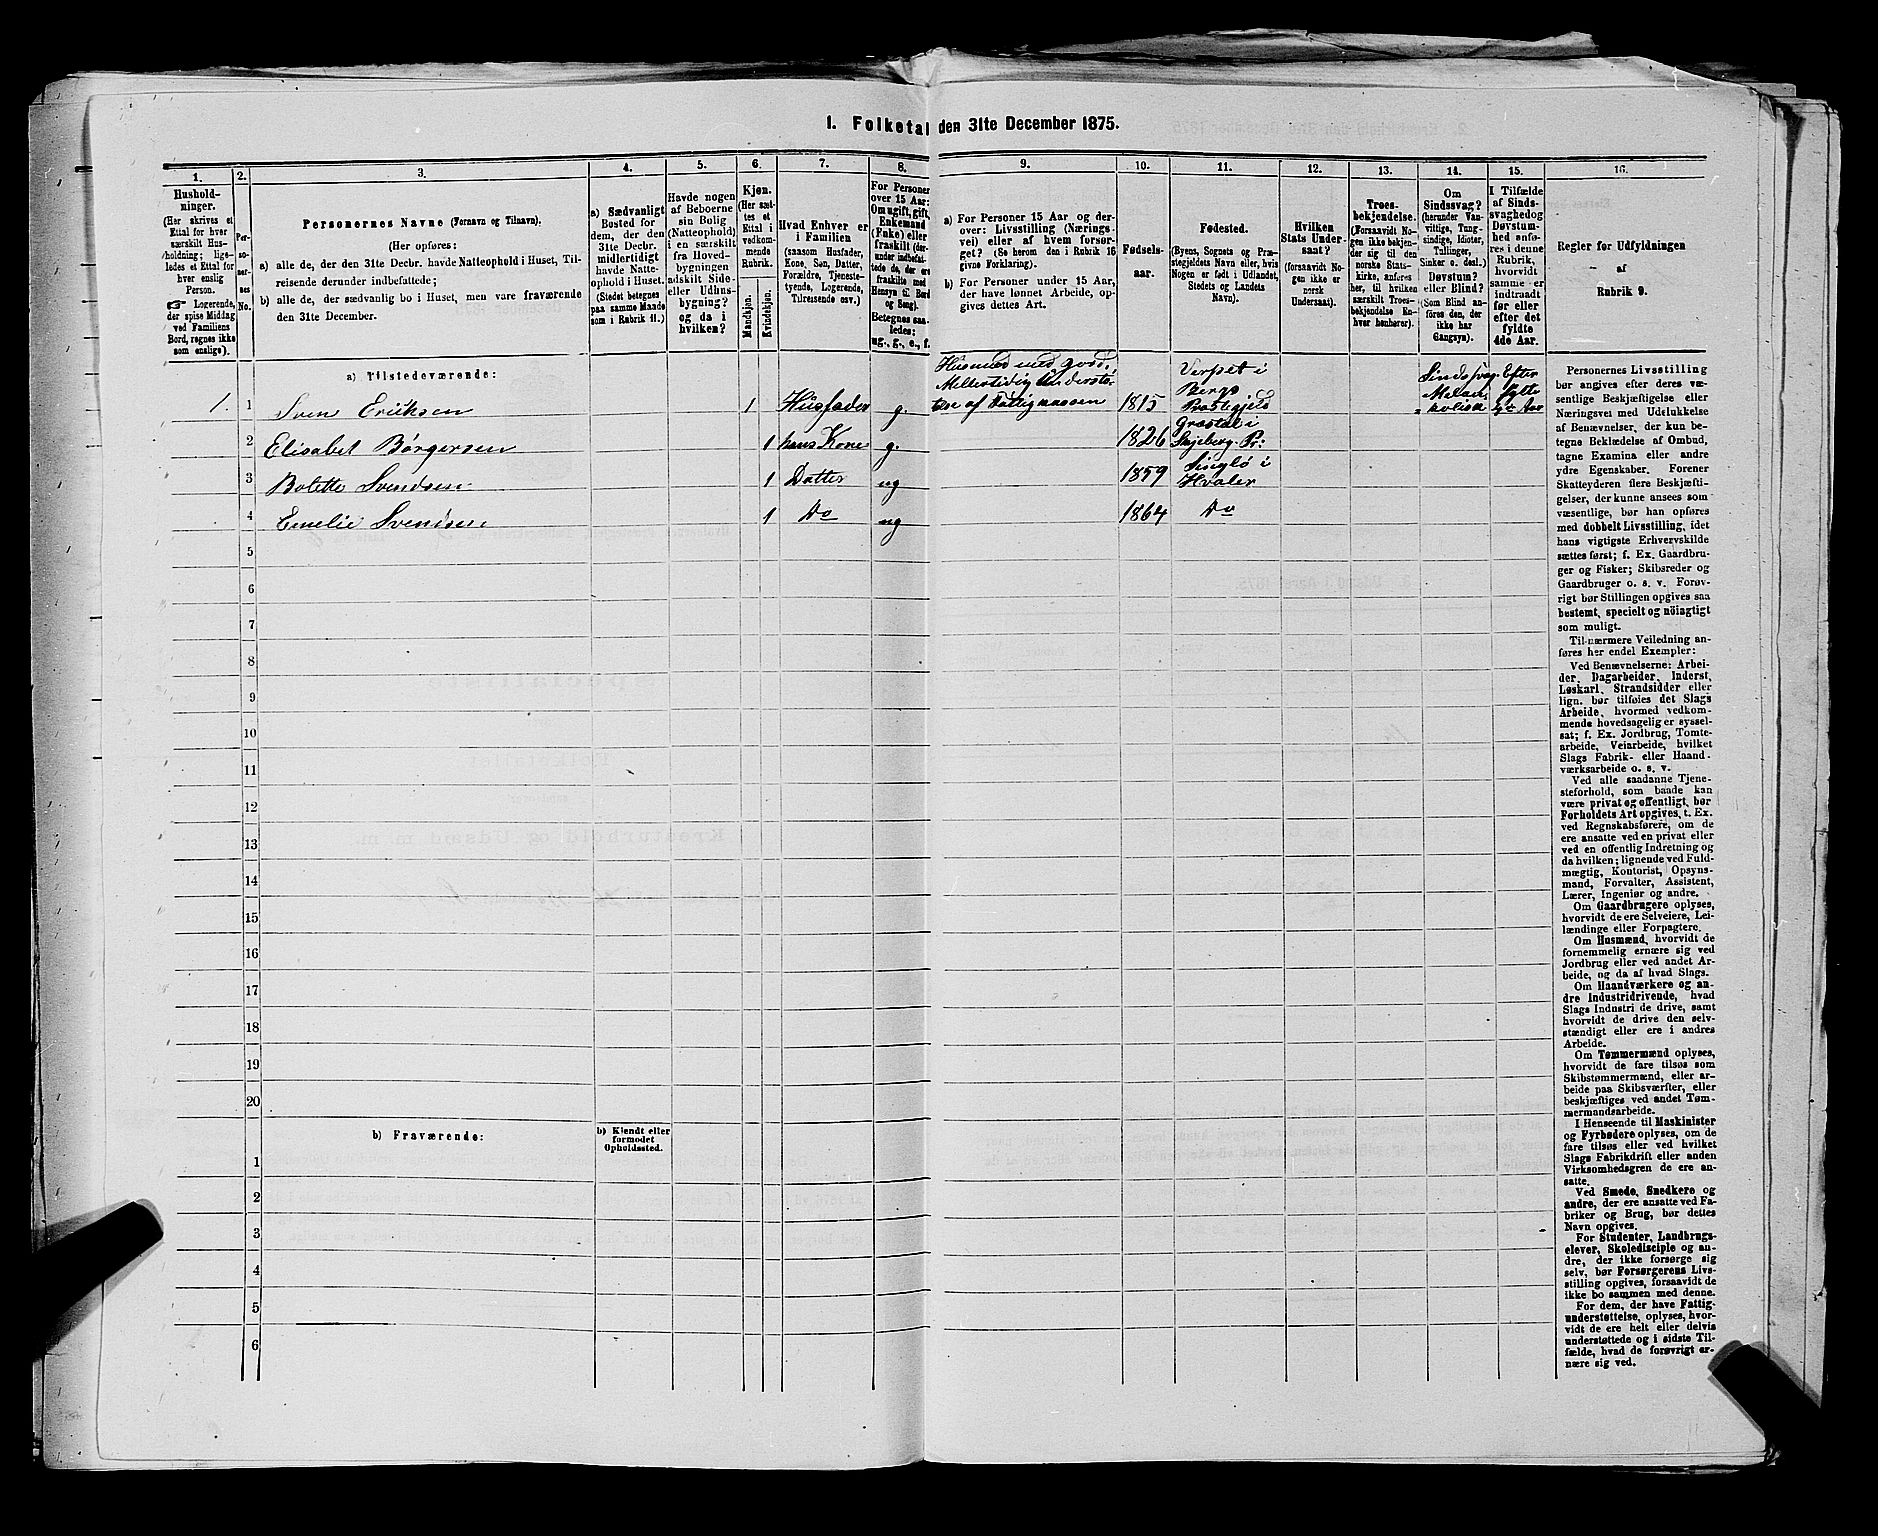 1. Folketal den 31te December 1875.
1.
2.
3.
4.
5.
6.
7.
8.
9.
10.
11.
12.
13.
14.
15.
16.
Hushold-
ninger.
(Her skrives et
Ettal for hver
særskilt Hus-
holdning; lige-
ledes et Ettal for
hver enslig
Person.
☞ Logerende,
der spise Middag
ved Familiens
Bord, regnes ikke
som enslige).
Per-
so-
ner-
nes
No.
Personernes Navne (Fornavn og Tilnavn).
(Her opføres:
a) alle de, der den 31te Decbr. havde Natteophold i Huset, Til-
reisende derunder indbefattede;
b) alle de, der sædvanlig bo i Huset, men vare fraværende
den 31te December.
a) Sædvanligt
Bosted for
dem, der den
31te Decbr.
midlertidigt
havde Natte-
ophold i Huset.
(Stedet betegnes
paa samme Maade
som i Rubrik 11.)
Havde nogen
af Beboerne
sin Bolig
(Natteophold)
i en særskilt
fra Hoved-
bygningen
adskilt Side-
eller Udhus-
bygning?
og da i
hvilken?
Kjøn.
(Her sæt-
tes et
Ettal i
vedkom-
mende
Rubrik.
Mandkjøn.
Kvindekjøn.
Hvad Enhver er
i Familien
(saasom Husfader,
Kone, Søn, Datter,
Forældre, Tjeneste-
tyende, Logerende,
Tilreisende osv.)
For Personer
over 15 Aar:
Om ugift, gift,
Enkemand
(Enke) eller
fraskilt (der-
under indbefat-
tede de, der ere
fraskilte med
Hensyn til Bord
og Seng).
Betegnes saa-
ledes:
ug., g., e., f.
a) For Personer 15 Aar og der-
over: Livsstilling (Nærings-
vei) eller af hvem forsør-
get? (Se herom den i Rubrik 16
givne Forklaring).
b) For Personer under 15 Aar,
der have lønnet Arbeide, op-
gives dettes Art.
Fødsels-
aar.
Fødested.
(Byens, Sognets og Præ-
stegjeldets Navn eller, hvis
Nogen er født i Udlandet,
Stedets og Landets
Navn).
Hvilken
Stats Under-
saat?
(forsaavidt No-
gen ikke er
norsk
Undersaat).
Troes-
bekjendelse.
(Forsaavidt No-
gen ikke bekjen-
der sig til den
norske Stats-
kirke, anføres
her, til hvilken
særskilt Troes-
bekjendelse En-
hver henhører).
Om
Sindssvag?
(herunder Van-
vittige, Tung-
sindige, Idioter,
Tullinger,
Sinker o. desl.)
Døvstum?
eller Blind?
(Som Blind an-
føres den, der
ikke har
Gangsyn).
I Tilfælde
af Sinds-
svaghed og
Døvstum-
hed anfø-
res i denne
Rubrik,
hvorvidt
samme er
indtraadt
før eller
efter det
fyldte
4de Aar.
Regler for Udfyldningen
af
Rubrik 9.
a) Tilstedeværende:
1.
1
Sven Eriksen
1
Husfader
g.
Husmand med Jord,
Midlertidig Understø-
telse af Fattigkassen
1815
i
Berg
Præstegjeld
Sindssvag
Melan-
kolisk
Efter
fylte
4de Aar
2
Elisabet Børgersen
1
hans Kone
g.
1826
i
Skjeberg Pr:
3
Bolette Svendsen
1
Datter
ug
1859
Singlø i
Hvaler
4
Emelie Svensen
1
Do
ug
1864
Do
5
6
7
8
9
10
11
12
13
14
15
16
17
18
19
20
b) Fraværende:
b) Kjendt eller
formodet
Opholdssted.
1
2
3
4
5
6
Personernes Livsstilling
bør angives efter deres væ-
sentlige Beskjæftigelse eller
Næringsvei med Udelukkelse
af Benævnelser, der kun be-
tegne Beklædelse af Ombud,
tagne Examina eller andre
ydre Egenskaber. Forener
Skatteyderen flere Beskjæfti-
gelser, der kunne ansees som
væsentlige, bør han opføres
med dobbelt Livsstilling, idet
hans vigtigste Erhvervskilde
sættes først; f. Ex. Gaardbru-
ger og Fisker; Skibsreder og
Gaardbruger o. s. v. Forøv-
rigt bør Stillingen opgives saa
bestemt, specielt og nöiagtigt
som muligt.
Til nærmere Veiledning an-
føres her endel Exempler:
Ved Benævnelserne: Arbei-
der, Dagarbeider, Inderst,
Løskarl, Strandsidder eller
lign. bør tilføies det Slags
Arbeide, hvormed vedkom-
mende hovedsagelig er syssel-
sat; f. Ex. Jordbrug, Tomte-
arbeide, Veiarbeide, hvilket
Slags Fabrik- eller Haand-
værksarbeide o. s. v.
Ved alle saadanne Tjene-
steforhold, som baade kan
være privat og offentligt, bør
Forholdets Art opgives, t. Ex.
ved Regnskabsførere, om de
ere ansatte ved en privat eller
ved en offentlig Indretning og
da hvilken; lignende ved Fuld-
mægtig, Kontorist, Opsyns-
mand, Forvalter, Assistent,
Lærer, Ingeniør og andre.
Om Gaardbrugere oplyses,
hvorvidt de ere Selveiere, Lei-
lændinge eller Forpagtere.
Om Husmænd, hvorvidt de
fornemmelig ernære sig ved
Jordbrug eller ved andet Ar-
beide, og da af hvad Slags.
Om Haandværkere og an-
dre Industridrivende, hvad
Slags Industri de drive, samt
hvorvidt de drive den selv-
stændigt eller ere i andres
Arbeide.
Om Tømmermænd oplyses,
hvorvidt de fare tilsøs som
Skibstømmermænd, eller ar-
beide paa Skibsværfter, eller
beskjæftiges ved andet Tøm-
mermandsarbeide.
I Henseende til Maskinister
og Fyrbødere oplyses, om de
fare tilsøs eller ved hvilket
Slags Fabrikdrift eller anden
Virksomhedsgren de ere an-
satte.
Ved Smede, Snedkere og
andre, der ere ansatte ved Fa-
briker og Brug, bør dettes
Navn opgives.
For Studenter, Landbrugs-
elever, Skoledisciple og an-
dre, der ikke forsørge sig
selv, bør Forsørgerens Livs-
stilling opgives, forsaavidt de
ikke bo sammen med denne.
For dem, der have Fattig-
understøttelse, oplyses, hvor-
vidt de ere helt eller delvis
understøttede og i sidste Til-
fælde, hvad de forøvrigt er-
nære sig ved.